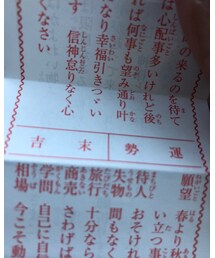 の来るのを待て
は心配事多いけれど後
れば何事も望み通り叶
なり 幸福引きつゞい
す 信神怠りなく心
なさい
運勢
末吉
願望 春より秋
い立つ事
待人 おそけれ
失物 間もなく
旅行 十分なら
商売 さわげば
学問 自己に自
相場 今こそ動